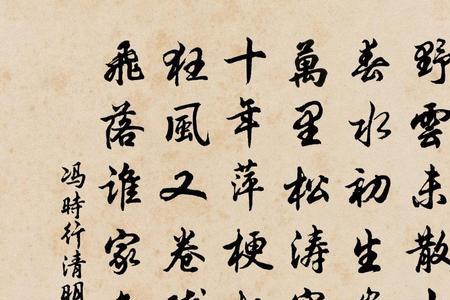 野雲未散
春水初生
萬里松涛
十年萍梗
狂風又卷
飛落谁家
冯時行清明